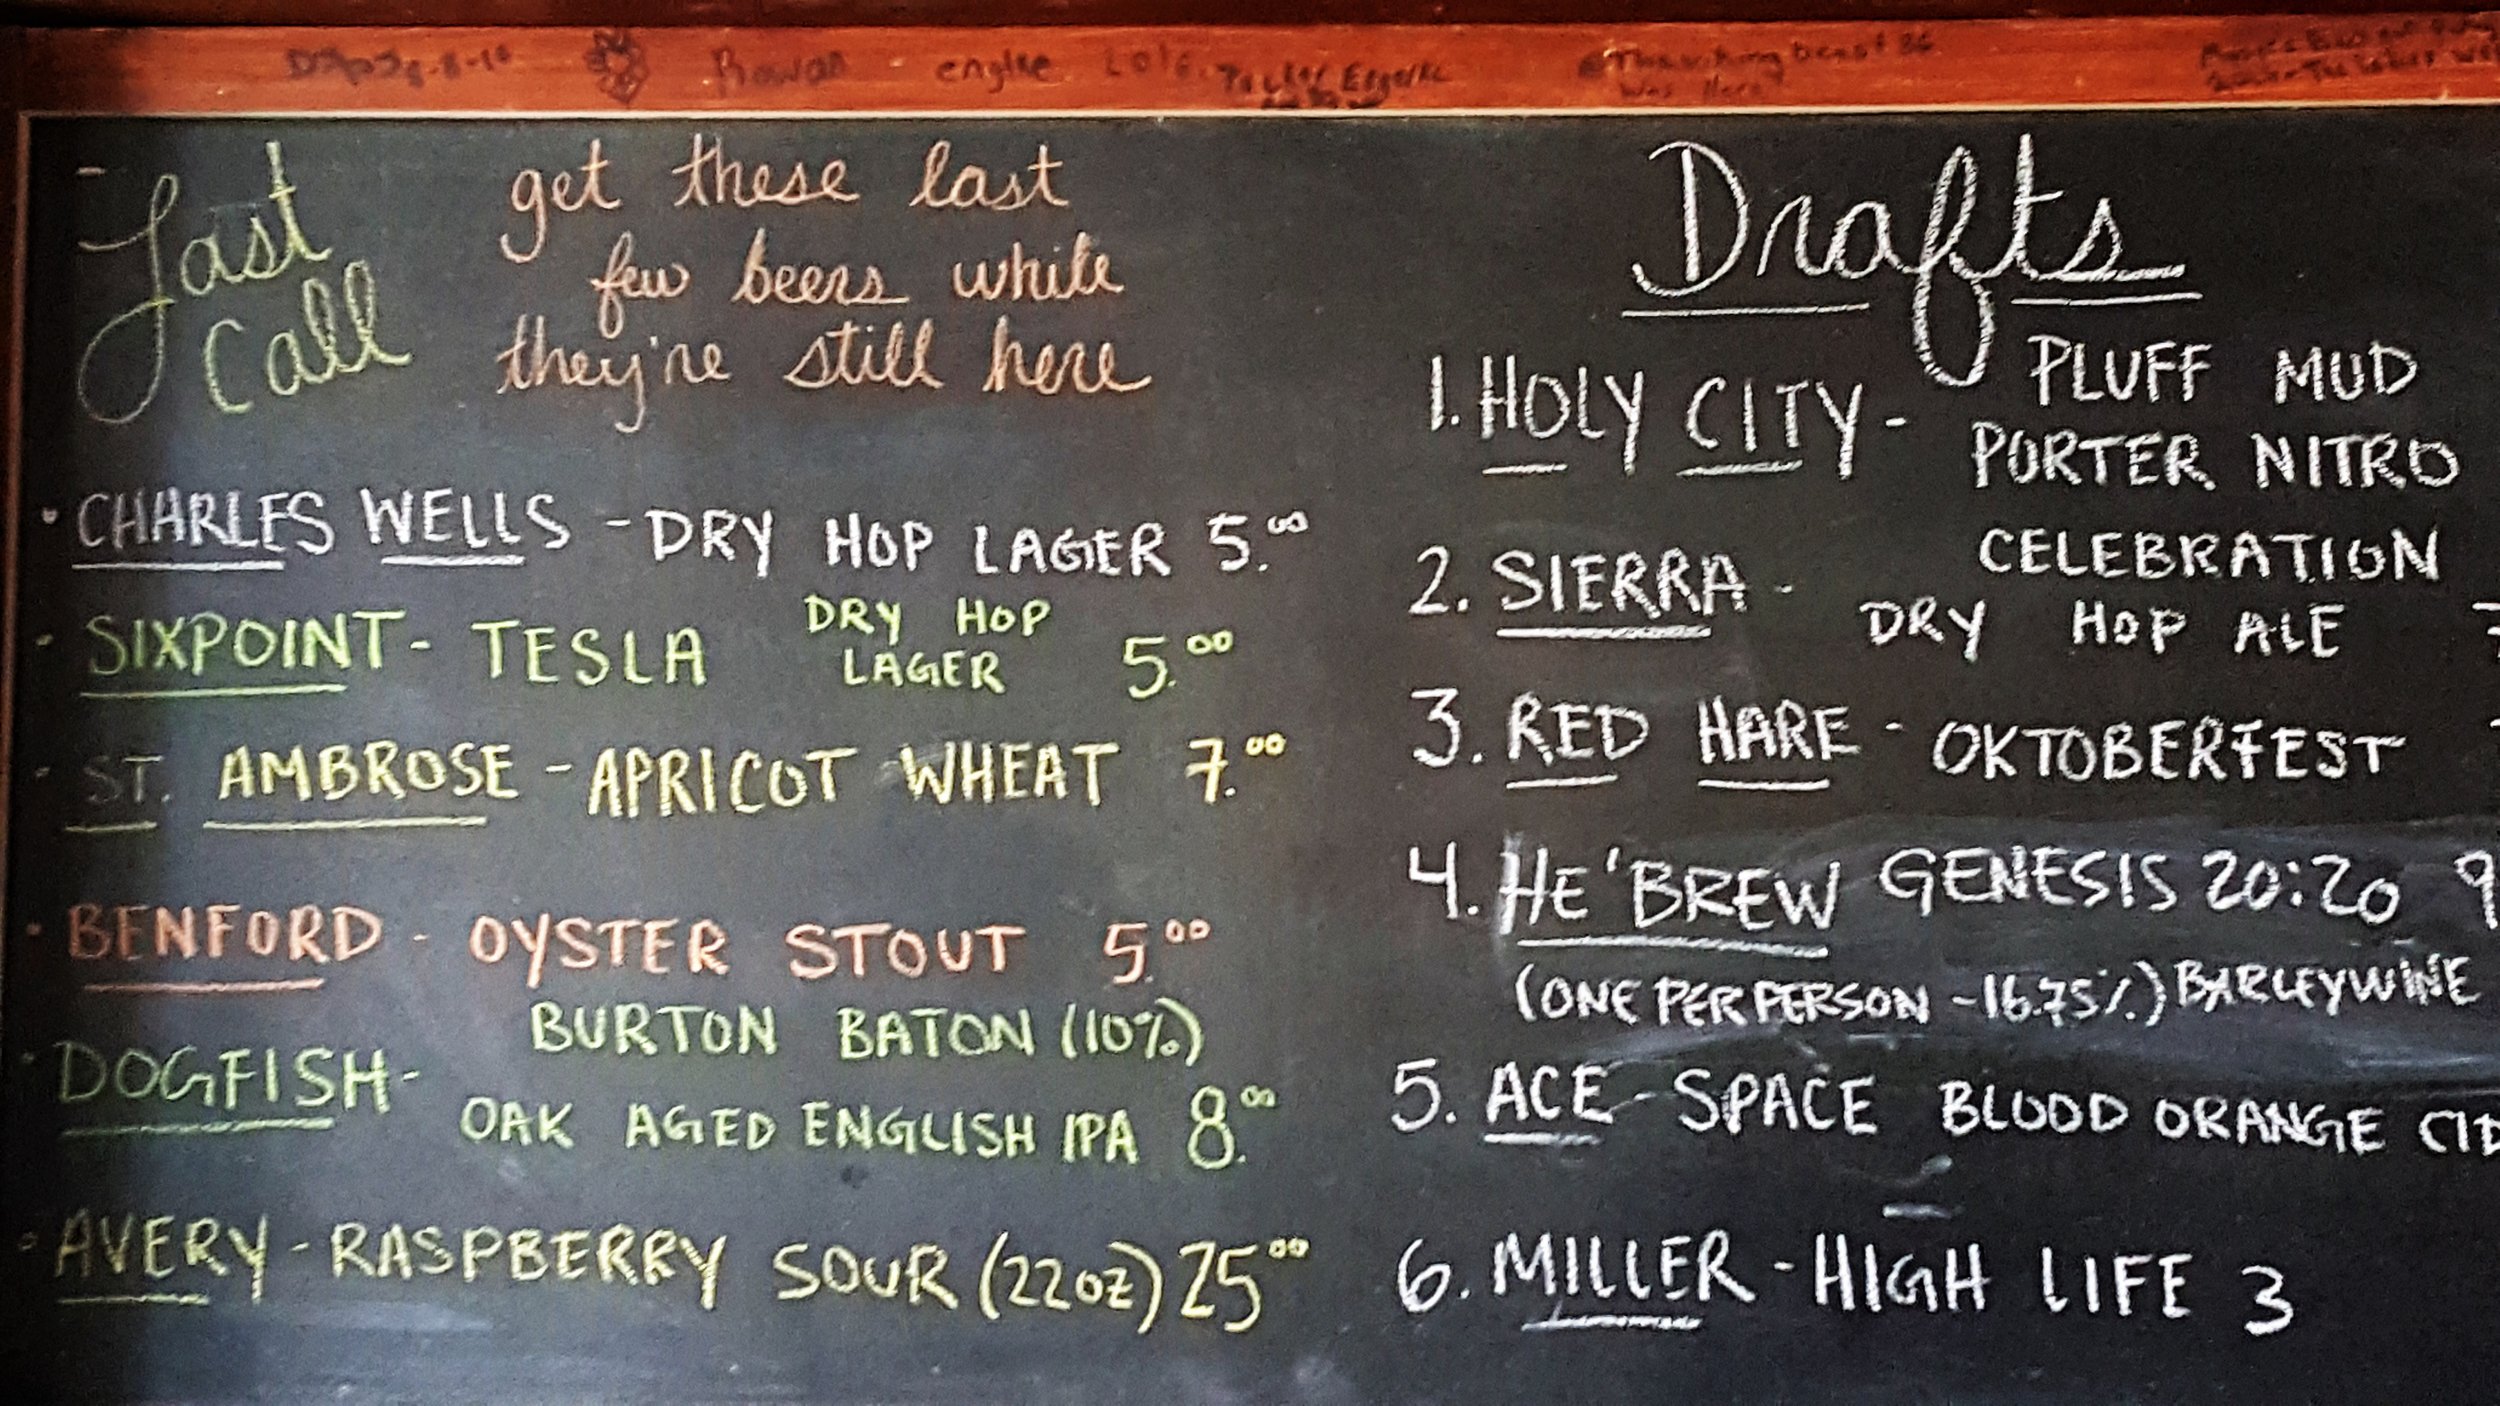 Rowan
Last
Call
get these last
few beers while
they're still here
• CHARLES WELLS - DRY HOP LAGER 5.00
• SIXPOINT - TESLA DRY HOP
LAGER 5.00
• ST. AMBROSE - APRICOT WHEAT 7.00
• BENFORD - OYSTER STOUT 5.00
BURTON BATON (10%)
• DOGFISH -
OAK AGED ENGLISH IPA 8.00
• AVERY - RASPBERRY SOUR (22OZ) 25.00
Drafts
1. HOLY CITY - PLUFF MUD
PORTER NITRO
CELEBRATION
2. SIERRA -
DRY HOP ALE
3. RED HARE - OKTOBERFEST
4. HE'BREW GENESIS 20:20 9
(ONE PER PERSON - 16.75%) BARLEYWINE
5. ACE - SPACE BLOOD ORANGE CID
6. MILLER - HIGH LIFE 3